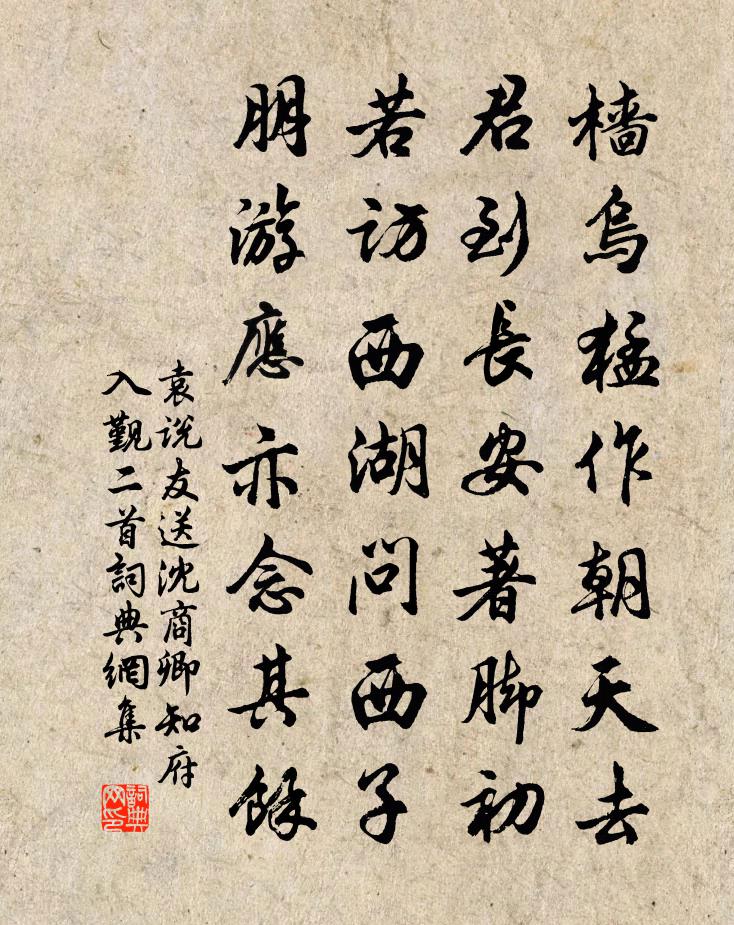 檣烏猛作朝天去
君到長安著脚初
若訪西湖問西子
朋游應亦念其餘
袁説友送沈商卿知府
入觀二首詞典網集
詞典
网印